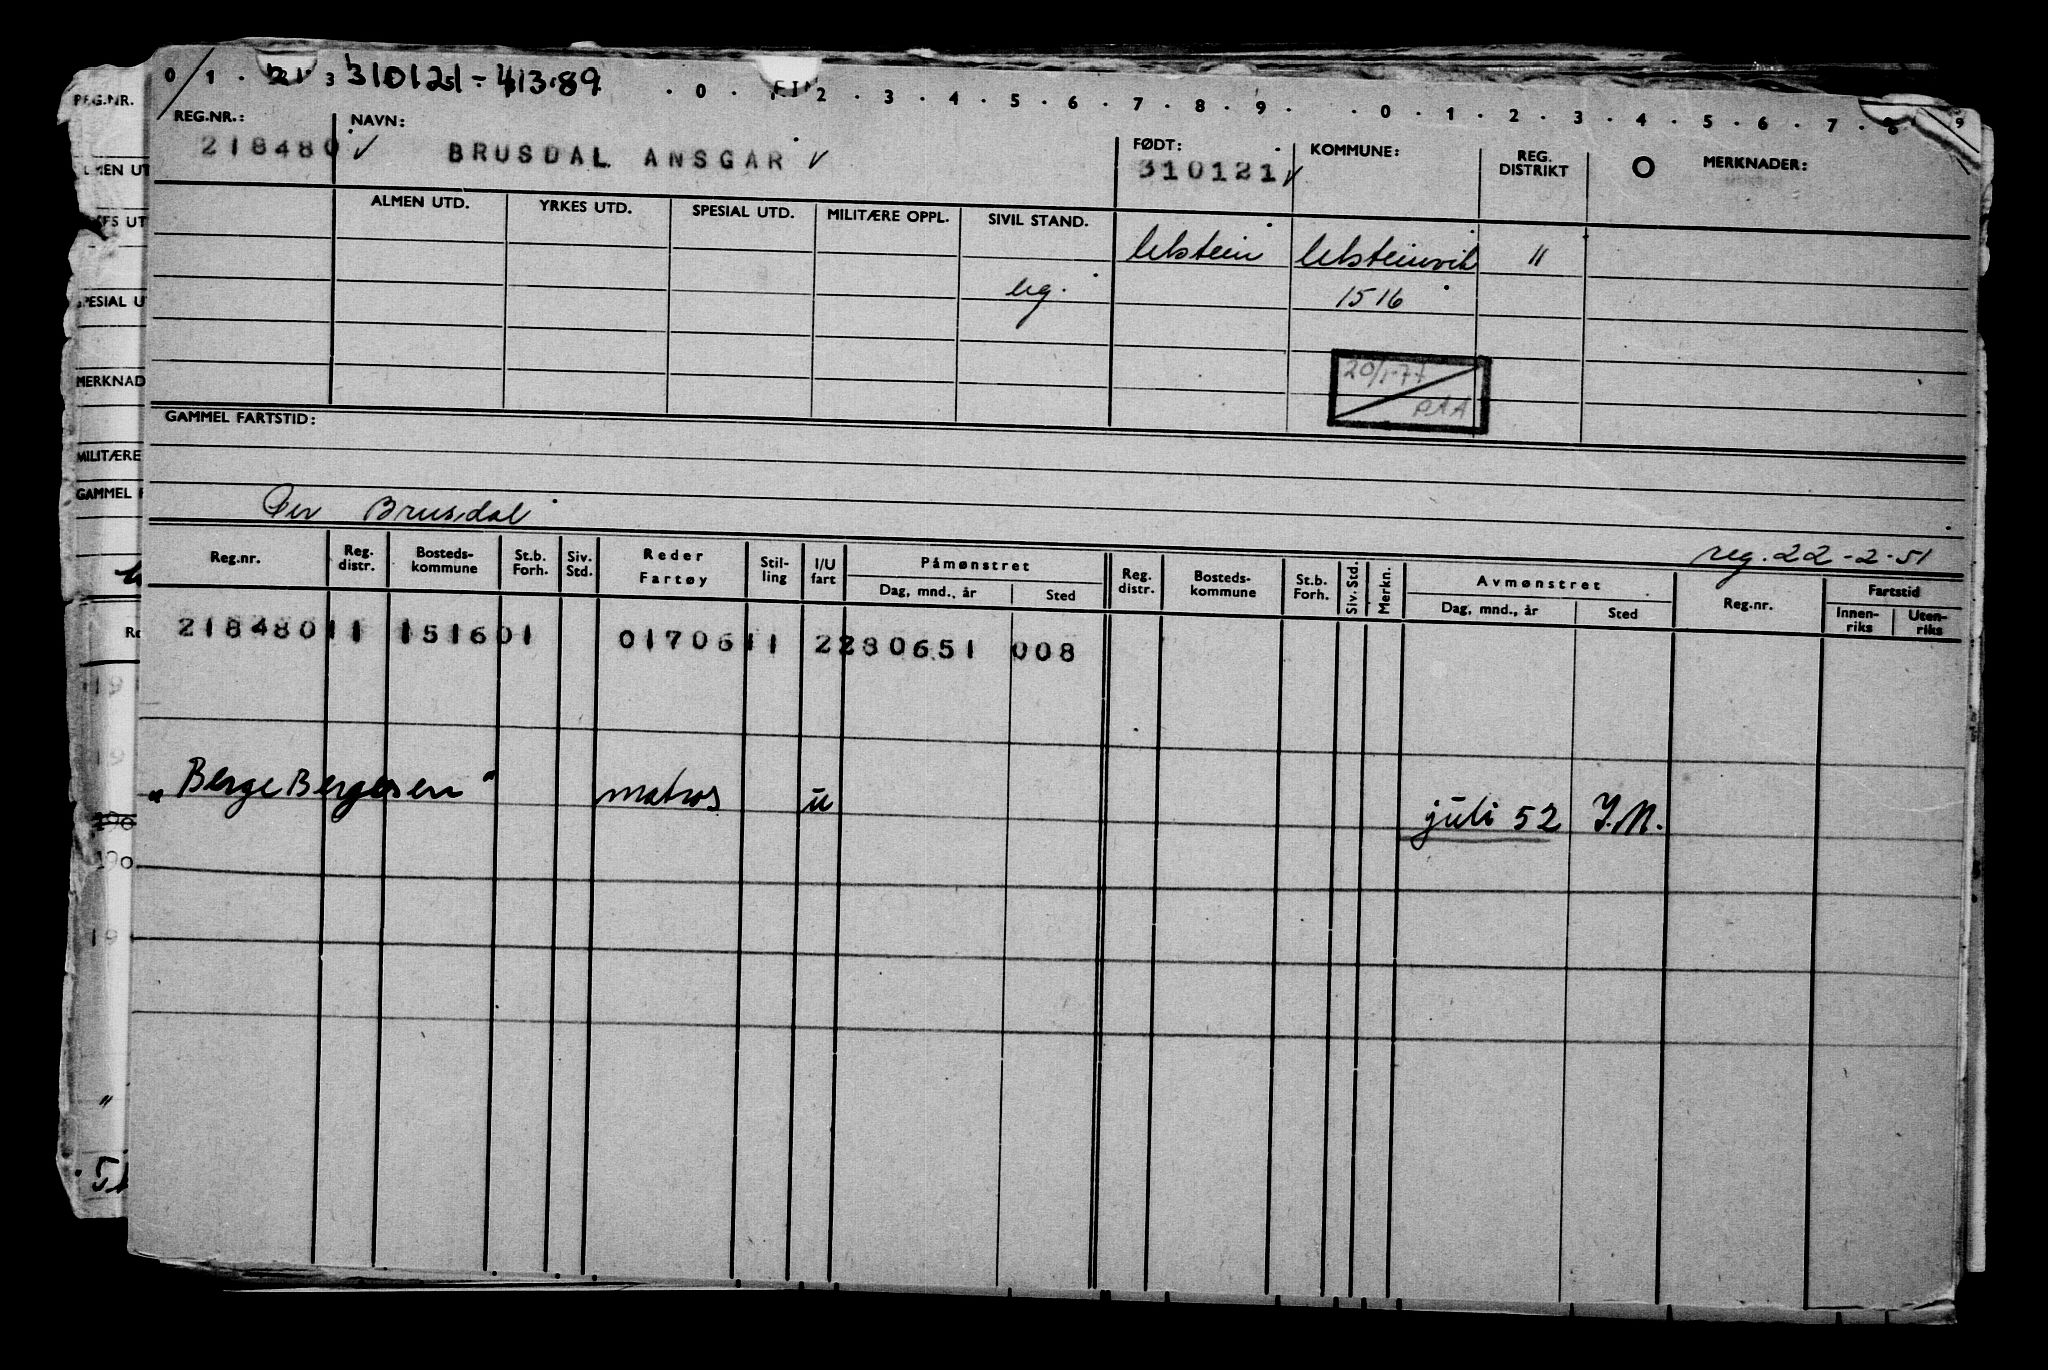 0 1 · 2 · 3 310121 - 413.89 · 0 · 1 · 2 · 3 · 4 · 5 · 6 · 7 · 8 · 9 · · 0 · 1 · 2 · 3 · 4 · 5 · 6 · 7 · 8 · 9
REG.NR.: NAVN: FØDT: KOMMUNE: REG. DISTRIKT O MERKNADER:
218480 ✓ BRUSDAL ANSGAR ✓ 310121 ✓
ALMEN UTD. YRKES UTD. SPESIAL UTD. MILITÆRE OPPL. SIVIL STAND.
Ulstein Ulsteinvik 11
ug. 1516
20/1-77
RAA
GAMMEL FARTSTID:
Per Brusdal
reg. 22-2-51
Reg.nr. Reg. distr. Bosteds-kommune St.b. Forh. Siv. Std. Reder Fartøy Stil-ling I/U fart Påmønstret Reg. distr. Bosteds-kommune St.b. Forh. Siv. Std. Merkn. Avmønstret Reg.nr. Fartstid
Dag, mnd., år Sted Dag, mnd., år Sted Innen-riks Uten-riks
218480 11 1516 01 0170611 2280651 008
"Berge Bergesen" matros u juli 52 J.M.
REG.NR.
MERKNAD
MILITÆRE